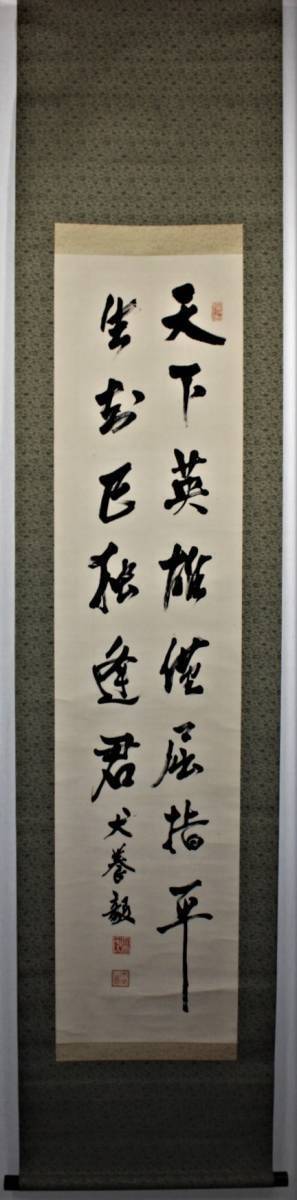 天下英雄僅屈指平
生知己独逢君
犬養毅